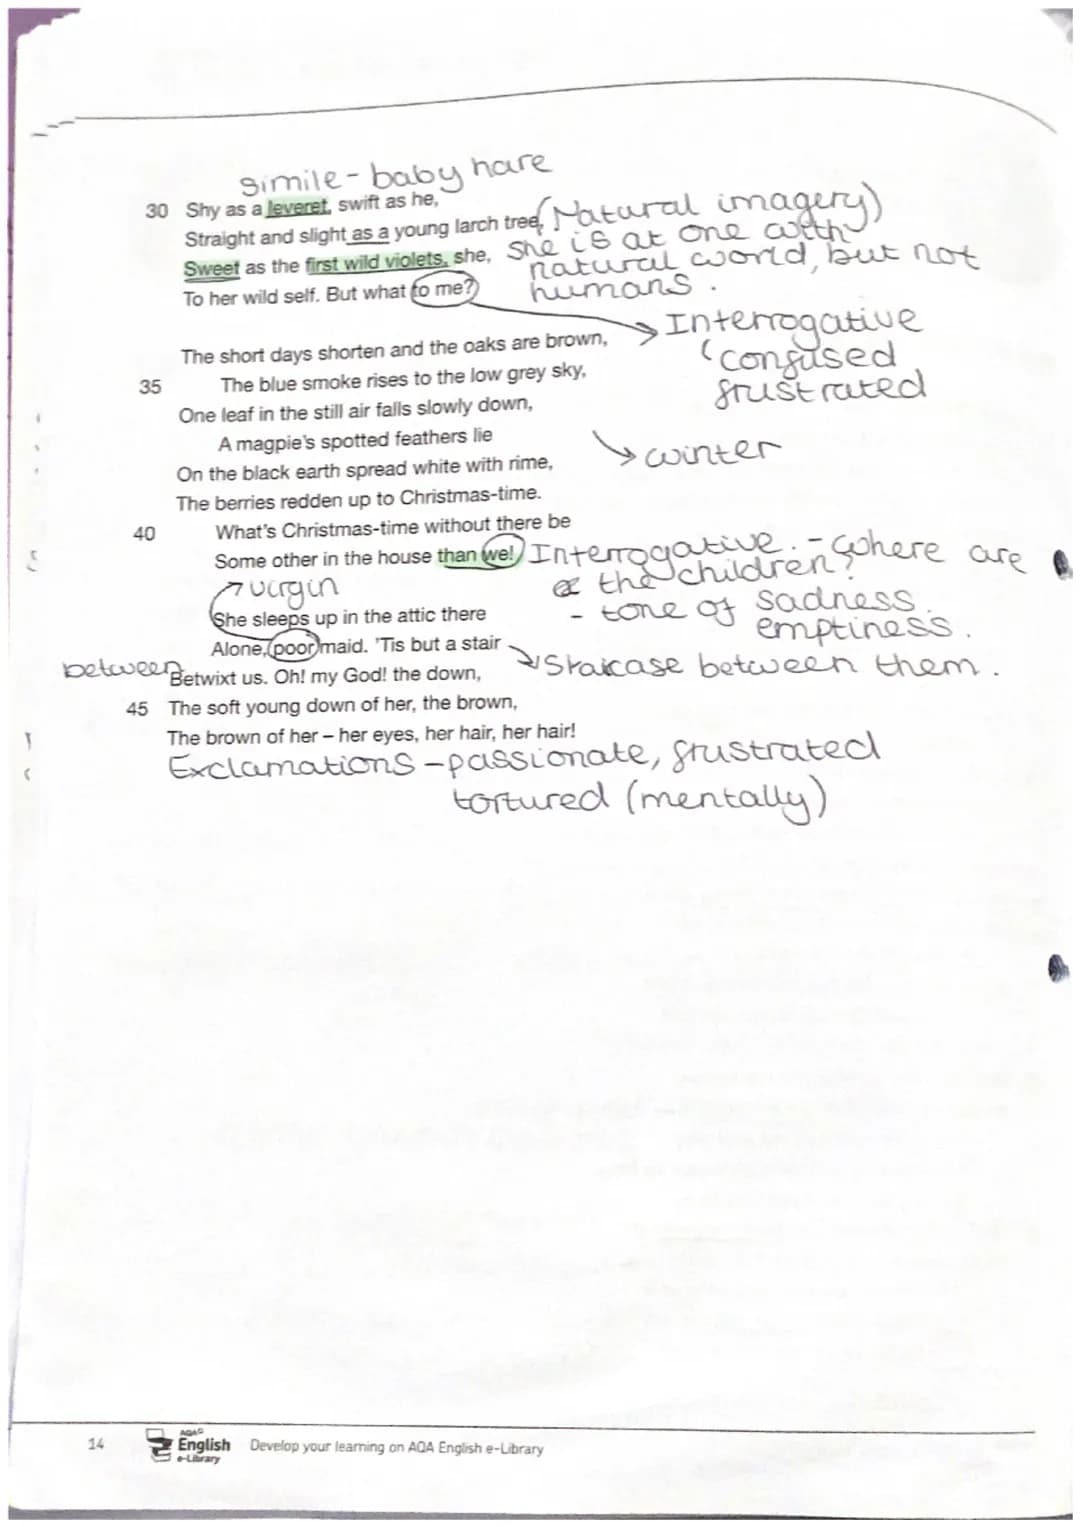 simile - baby hare
30 Shy as a leveret, swift as he,
Straight and slight as a young larch tree, (Natural imagery)
Sweet as the first wild violets, she, She is at one with
natural world, but not
To her wild self. But what to me? humans.
Interrogative
The short days shorten and the oaks are brown, confused
35 The blue smoke rises to the low grey sky, frustrated
One leaf in the still air falls slowly down,
A magpie's spotted feathers lie winter
On the black earth spread white with rime,
The berries redden up to Christmas-time.
40 What's Christmas-time without there be
Some other in the house than we! Interrogative. - where are
the children?
virgin
She sleeps up in the attic there - tone of sadness.
emptiness.
Alone, poor maid. 'Tis but a stair
between Betwixt us. Oh! my God! the down, Staircase between them.
45 The soft young down of her, the brown,
The brown of her – her eyes, her hair, her hair!
Exclamations - passionate, frustrated
tortured (mentally)
14 AQA English e-Library Develop your learning on AQA English e-Library